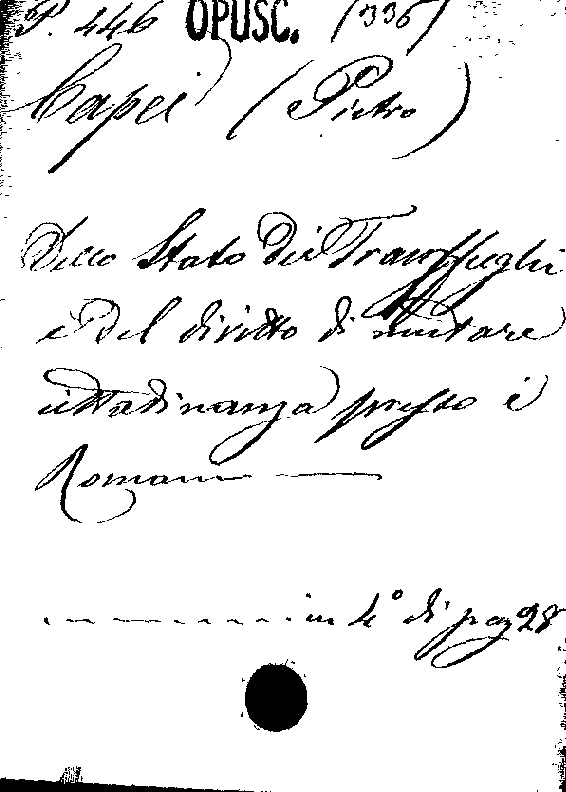 P. 446 OPUSC. (336)
Capei (Pietro)
Dello Stato dei Transffughi
e del diritto di mutare
cittadinanza presso i
Romani —
- - - - - - - - - - in 4° di pag 28